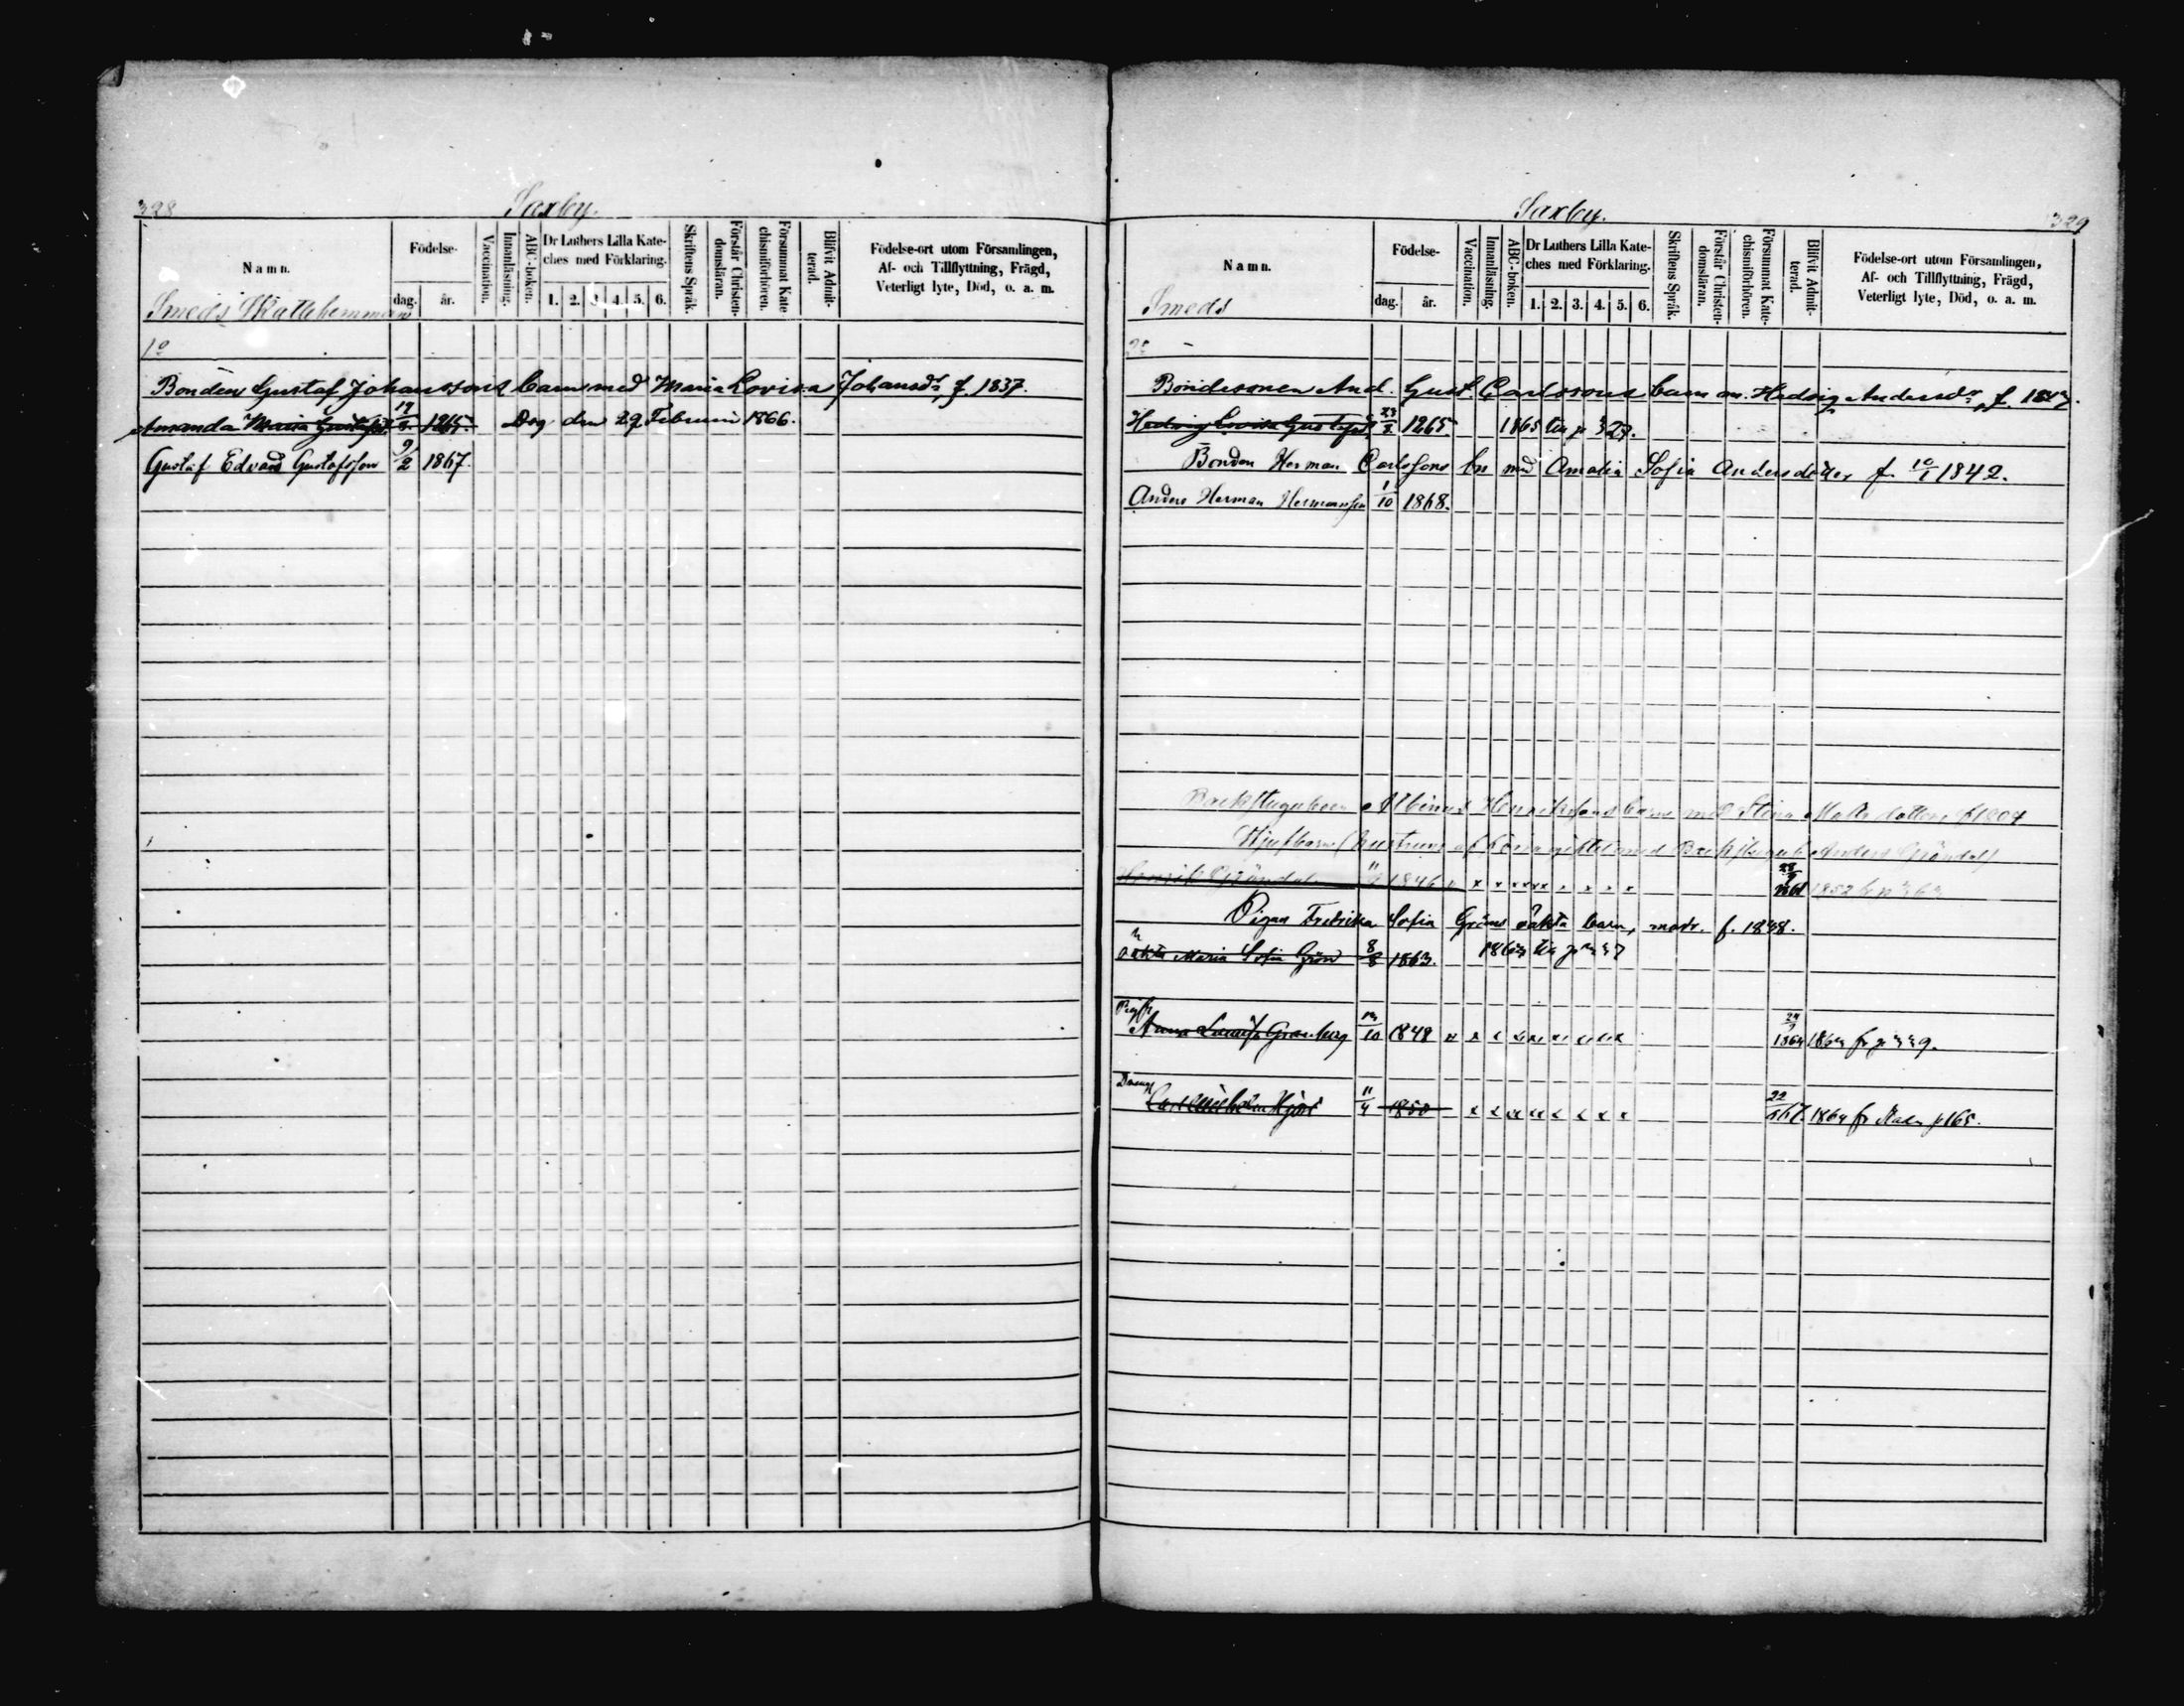 328
Saxby.
Namn.
Födelse-
dag. år.
Vaccination.
Innanläsning.
ABC-boken.
Dr Luthers Lilla Kate-
ches med Förklaring.
1. 2. 3. 4. 5. 6.
Skriftens Språk.
Förstår Christen-
domsläran.
Försummat Kate
chismiförhören.
Blifvit Admit-
terad.
Födelse-ort utom Församlingen,
Af- och Tillflyttning, Frägd,
Veterligt lyte, Död, o. a. m.
Smeds Skattehemman
1o
Bonden Gustaf Johanssons barn med Maria Lovisa Johansdr, f 1837.
Amanda Maria Gustafsd. 1865. Dog den 29 Februari 1866.
Gustaf Edvard Gustafsson 9/2 1867.
Saxby.
329
Namn.
Födelse-
dag. år.
Vaccination.
Innanläsning.
ABC-boken.
Dr Luthers Lilla Kate-
ches med Förklaring.
1. 2. 3. 4. 5. 6.
Skriftens Språk.
Förstår Christen-
domsläran.
Försummat Kate-
chismiförhören.
Blifvit Admit-
terad.
Födelse-ort utom Församlingen,
Af- och Tillflyttning, Frägd,
Veterligt lyte, Död, o. a. m.
Smeds
Bondesonen And. Gust. Carlssons barn m. Hedvig Andersdr, f.
Hedvig Lovisa Gustafsd. 1865. 1865 till p 327.
Bonden Herman Carlssons bn med Amalia Sofia Andersdotter f. 10/1 1842.
Anders Herman Hermansson 1/10 1868.
Albinus Henrikssons barn med Stina Matts dotter f 1807
Henrik Gröndal 1846
Pigan Fredrika Sofia Gröns oäkta barn, modr. f. 1848.
oäkta Maria Sofia Grön 8/8 1863.
Anna Lovisa Granberg 10 1848 x x x x x x x x 1864 fr p 339.
Carl Wilhelm Hjort 11/4 1850 x x x x x x x x 1864 fr p 165.